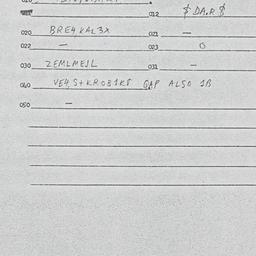 012 $ DA.R $
020 BRE4KAL3X 021 —
022 — 023 0
030 ZEMLMEJL 031 —
040 VE4,S+KROB1K8 GAP ALSO 1B
050 —